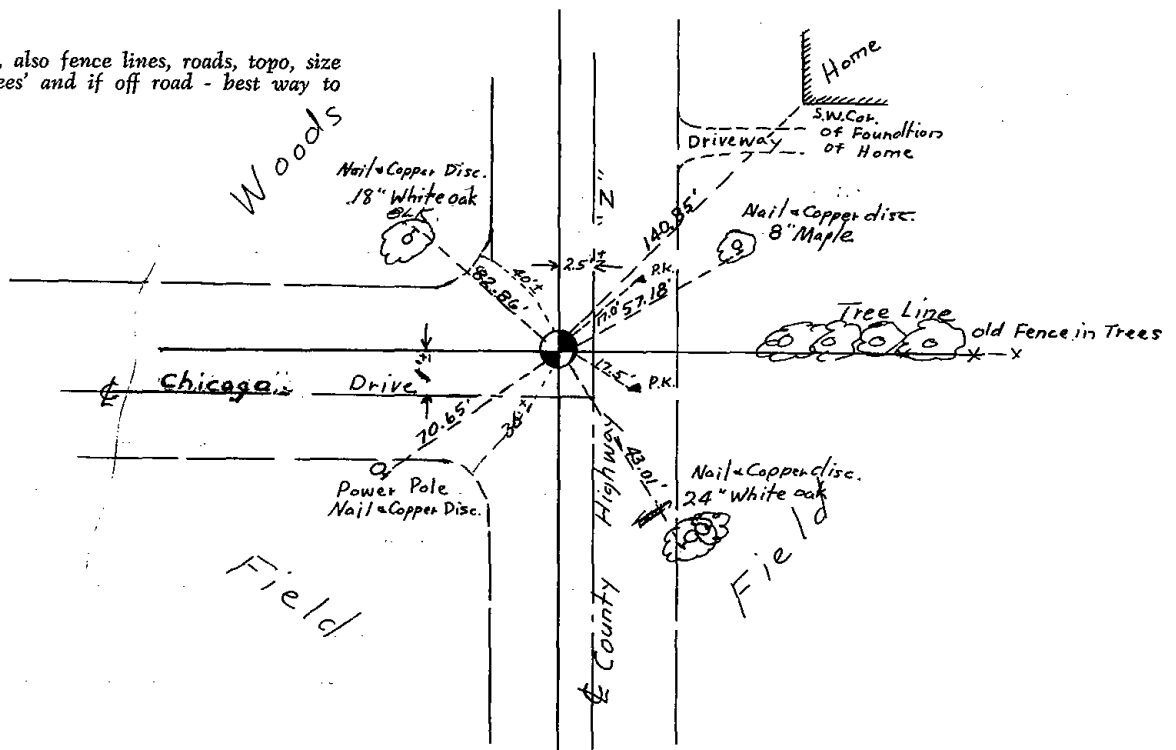 , also fence lines, roads, topo, size
ees' and if off road - best way to
Woods
Home
S.W. Cor.
of Foundtion
of Home
Driveway
Nail & Copper Disc.
18" White oak
BLK.
"Z"
140.85'
Nail & Copper disc.
8" Maple
2.5'±
P.K.
40'±
82.86'
17.0'
57.18'
Tree Line
old Fence in Trees
x
x
1'±
℄ Chicago Drive
12.5'
P.K.
70.65'
43.01'
Power Pole
Nail & Copper Disc.
Nail & Copper disc.
24" White oak
Field
Field
℄ County Highway